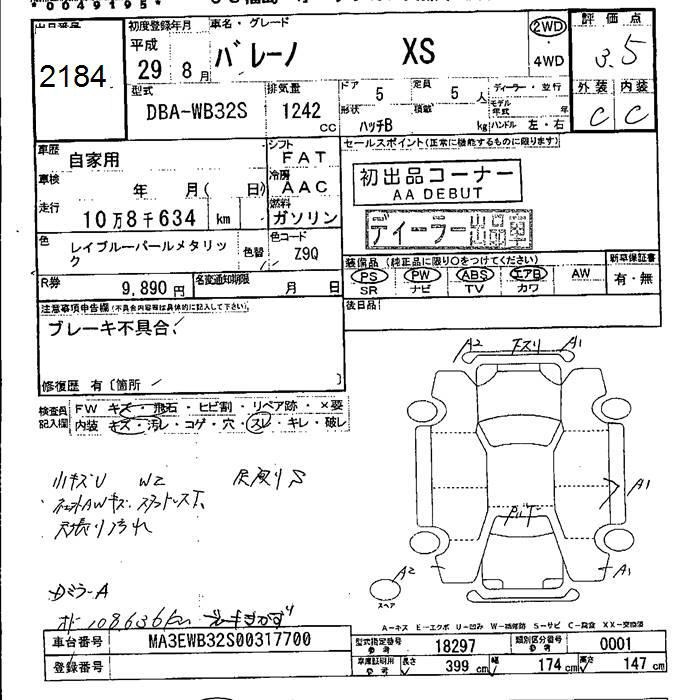 出品番号
2184
初度登録年月
平成
29 8月
車名・グレード
バレーノ XS
2WD
・
4WD
評価点
3.5
外装 内装
C C
型式
DBA-WB32S
排気量
1242
cc
ドア 5
定員 5 人
形状 ハッチB
積載 kg
ディーラー・並行
モデル年式 年
ハンドル 左・右
車歴 自家用
車検 年 月( 日)
走行 10万8千634 km
シフト FAT
冷房 AAC
燃料 ガソリン
色 レイブルーパールメタリック
色替
色コード Z9Q
R券 9,890 円
名変通知期限 月 日
セールスポイント(正常に機能するものに限ります)
初出品コーナー
AA DEBUT
ディーラー出品車
装備品(純正品に限り○をつけてください)
PS PW ABS エアB AW
SR ナビ TV カワ
新車保証書
有・無
後日品
注意事項申告欄(不具合内容等は具体的に記入して下さい)
ブレーキ不具合、
修復歴 有〔箇所
検査員記入欄
FW キズ・飛石・ヒビ割・リペア跡・×要
内装 キズ・汚レ・コゲ・穴・スレ・キレ・破レ
小キズU W2
天張り汚れ
DミラーA
108636km
A2 下スリ A1
A1
A2 A1
スペア
A-キズ E-エクボ U-凹み W-補修跡 S-サビ C-腐食 XX-交換済
車台番号 MA3EWB32S00317700
登録番号
型式指定番号 参考 18297
類別区分番号 参考 0001
車庫証明用 参考 長さ 399 cm 幅 174 cm 高さ 147 cm